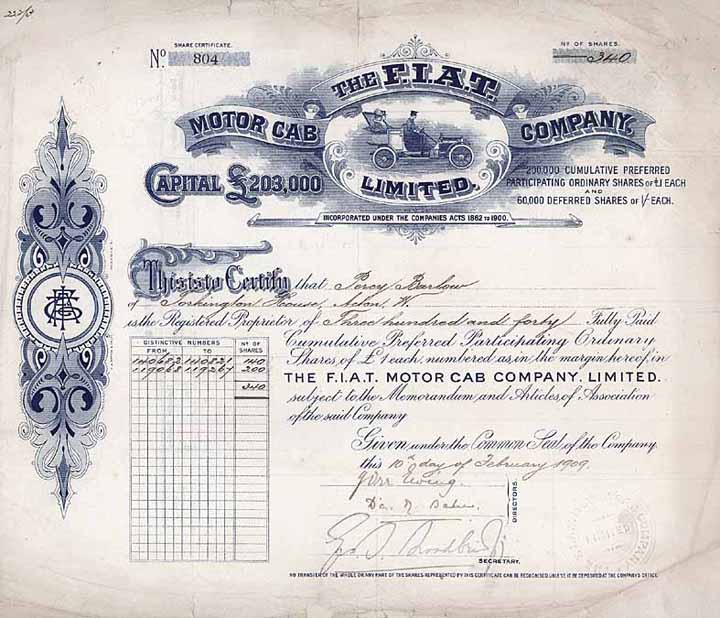 222/5
SHARE CERTIFICATE.
No. 804
No OF SHARES.
340
THE F.I.A.T.
MOTOR CAB COMPANY.
LIMITED.
CAPITAL £203,000
200,000 CUMULATIVE PREFERRED
PARTICIPATING ORDINARY SHARES OF £1 EACH
AND
60,000 DEFERRED SHARES OF 1/- EACH.
INCORPORATED UNDER THE COMPANIES ACTS 1862 TO 1900.
This is to Certify that Percy Barlow
of Torkington House, Acton, W.
is the Registered Proprietor of Three hundred and forty Fully Paid
Cumulative Preferred Participating Ordinary
Shares of £1 each, numbered as in the margin hereof, in
THE F.I.A.T. MOTOR CAB COMPANY, LIMITED.
subject to the Memorandum and Articles of Association
of the said Company
DISTINCTIVE NUMBERS
FROM TO
No OF SHARES
140682 140821 140
119068 119267 200
340
Given under the Common Seal of the Company
this 10th day of February 1909.
J Orr Ewing
DIRECTORS.
SECRETARY.
NO TRANSFER OF THE WHOLE OR ANY PART OF THE SHARES REPRESENTED BY THIS CERTIFICATE CAN BE RECOGNISED UNLESS IT BE DEPOSITED AT THE COMPANY'S OFFICE.